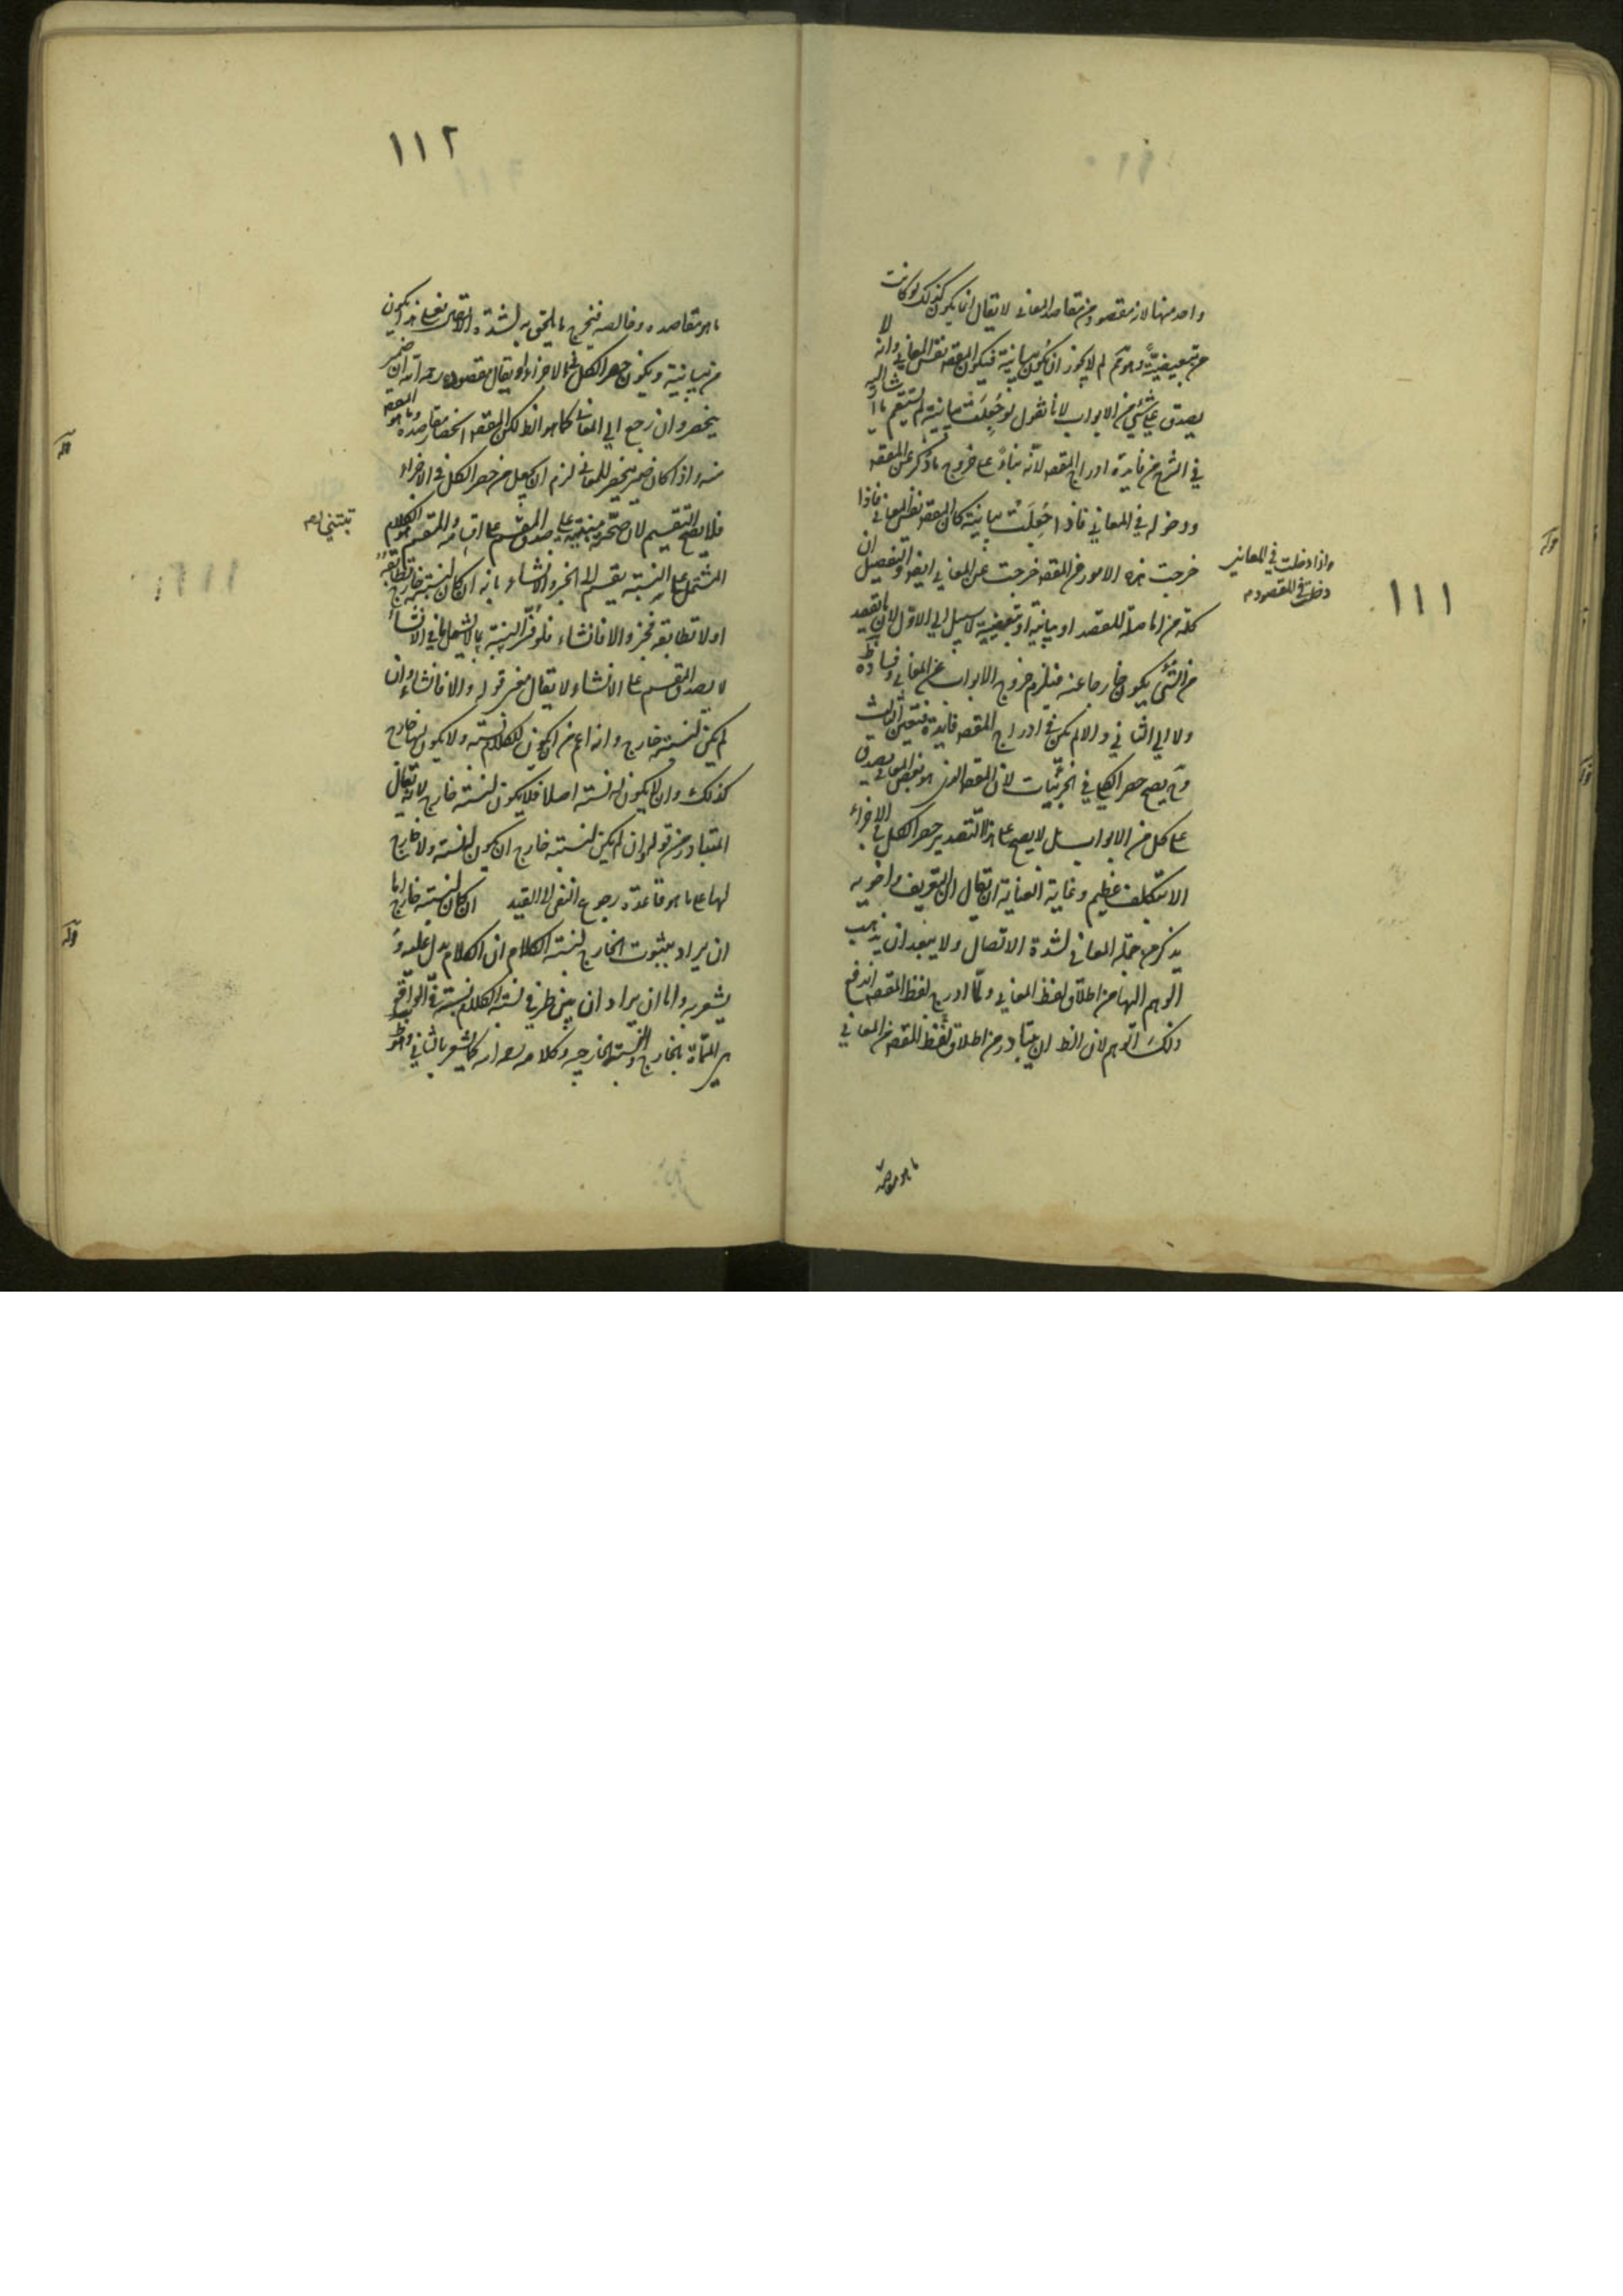 ١١١
واحد منها لانه مقصود من مقاصد المعاني لا يقال انما يكون كذلك لو كانت
من تبعيضية وهو مم لم لا يجوز ان يكون بيانية فيكون المقصد نفس المعاني وانه لا
يصدق على شيء من الابواب لانا نقول لو جعلت بيانية لم يستقم ما اشار اليه
في الشرح من فايدة ادراج المقصد لانه بناء على خروج ما ذكر عن المقصد
ودخوله في المعاني فاذا جعلت بيانية كان المقصد نفس المعاني فاذا
خرجت هذه الامور من المقصد خرجت عن المعاني ايضا والتفصيل ان
واذا دخلت في المعاني
دخلت في المقصود
كلمة من اما صلة للقصد او بيانية او تبعيضية لا سبيل الى الاول لان المقصد
من الشيء يكون خارجا عنه فيلزم خروج الابواب عن المعاني وفساده ظ
ولا الى الثاني والا لم يكن في ادراج المقصد فايدة فتعين الثالث
وح يصح حصر الكلي في الجزئيات لان المقصد الذي هو بعض المعاني يصدق
على كل من الابواب بل لا يصح على هذا التقدير حصر الكل في الاجزاء
الا بتكلف عظيم وغاية العناية ان يقال ان التعريف واخويه
يذكر من جملة المعاني لشدة الاتصال ولا يبعد ان يذهب
الوهم اليها من اطلاق لفظ المعاني ولما ادرج لفظ المقصد اندفع
ذلك التوهم لان الظ ان يتبادر من اطلاق لفظ المقصد من المعاني
ما هو مقاصده
١١٢
ما هو مقاصده وخالصه فيخرج ما يلحق به لشدة الاتصال فعلى هذا يكون
من بيانية ويكون حصر الكل في الاجزاء او يقال مقصوده رحمه الله ان ضمير
ينحصر وان رجع الى المعاني كما هو الظ لكن المقصد انحصار مقاصده وما هو المقصد
منه واذا كان ضمير ينحصر للمعاني لزم ان يجعل من حصر الكل في الاجزاء
فلا يصح التقسيم لان صحته مبنية على صدق المقسم على اقسامه والمقسم هو الكلام
تبتني
المشتمل على النسبة يقسم الى الخبر والانشاء بانه ان كان لنسبته خارج تطابقه
او لا تطابقه فخبر والا فانشاء فلو فسر النسبة بما لا يشمل ما في الانشاء
لا يصدق المقسم على الانشاء ولا يقال معنى قوله والا فانشاء وان
لم يكن لنسبته خارج وانه اعم من ان يكون للكلام نسبة ولا يكون لها خارج
كذلك وان لا يكون له نسبة اصلا فلا يكون لنسبته خارج لانه يقال
المتبادر من قوله وان لم يكن لنسبته خارج ان يكون له نسبة ولا خارج
لها على ما هو قاعدة رجوع النفي الى القيد ان كان لنسبته خارج اما
ان يراد بثبوت الخارج لنسبة الكلام ان الكلام يدل عليه و
يشعر به واما ان يراد ان بين طرفي نسبة الكلام نسبة في الواقع
هي المسماة بالخارج والنسبة الخارجية وكلامه كالشعر بالثاني وهو